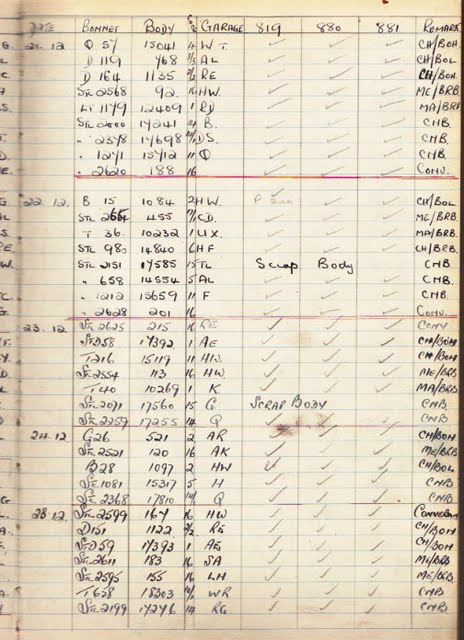 DATE BONNET BODY GARAGE 819 880 881 REMARK
21.12. Q 57 15041 4 W T. CH/BOH
D 119 768 3/3 AL CH/BOL
D 164 1135 2/2 RE CH/BOH
STL 2568 92. 16 HW. ME/BRB
LT 1179 12409 1 RD MA/BRB
STL 2000 17241 14 B. CNB.
" 2378 17698 DS. CNB.
" 1271 15712 11 Q CNB.
" 2620 188 16 CONV.
22.12. B 15 1084 2 HW. CH/BOL
STL 2664 455 CD. ME/BRB
T 36. 10232 1 UX. MA/BRB.
STL 980 14840 6 HF CH/BRB.
STL 2151 17585 15 TL Scrap Body CNB
" 658 14554 5 AL CNB.
" 1212 15659 11 F CNB.
" 2628 201 16 CONV.
23.12. STL 2625 215 16 RE CONV
STD 58 17392 1 AE CH/BOH
T 216 15119 11 HW. CH/BOH
STL 2554 113 16 HW. ME/BRB
T 40 10269 1 K MA/BRB
STL 2071 17560 15 G. SCRAP BODY CNB.
STL 2259 17255 14 Q CNB
24.12. G26 521 2 AR CH/BOH
STL 2521 120 16 AK ME/BRB
B28 1097 2 HW CH/BOL
STL 1081 15317 5 H CNB
STL 2368 17810 Q CNB
28.12. STL 2599 164 16 HW
D151 1122 2/2 RE CH/BOH
STD 59 17393 1 AE CH/BOH
STL 2611 183 16 SA ME/BRB
STL 2595 155 16 LH ME/BRB
T 658 18303 WR CNB
STL 2199 17276 14 RG CNB